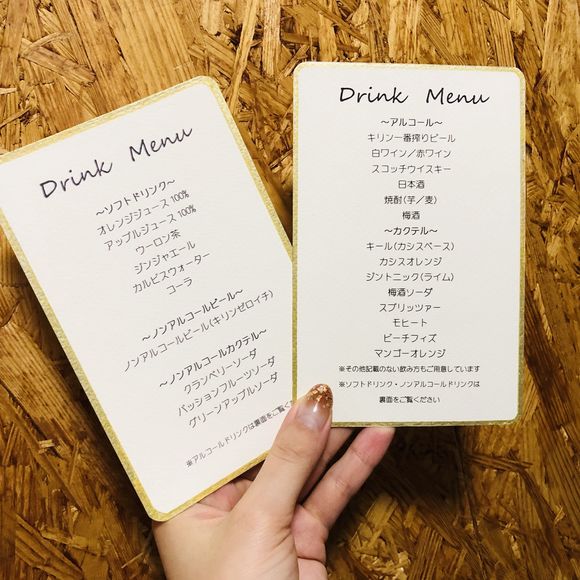 Drink Menu
～ソフトドリンク～
オレンジジュース100%
アップルジュース100%
ウーロン茶
ジンジャエール
カルピスウォーター
コーラ
～ノンアルコールビール～
ノンアルコールビール(キリンゼロイチ)
～ノンアルコールカクテル～
クランベリーソーダ
パッションフルーツソーダ
グリーンアップルソーダ
※アルコールドリンクは裏面をご覧く
Drink Menu
～アルコール～
キリン一番搾りビール
白ワイン／赤ワイン
スコッチウイスキー
日本酒
焼酎(芋／麦)
梅酒
～カクテル～
キール(カシスベース)
カシスオレンジ
ジントニック(ライム)
梅酒ソーダ
スプリッツァー
モヒート
ピーチフィズ
マンゴーオレンジ
※その他記載のない飲み方もご用意しています
※ソフトドリンク・ノンアルコールドリンクは
裏面をご覧ください